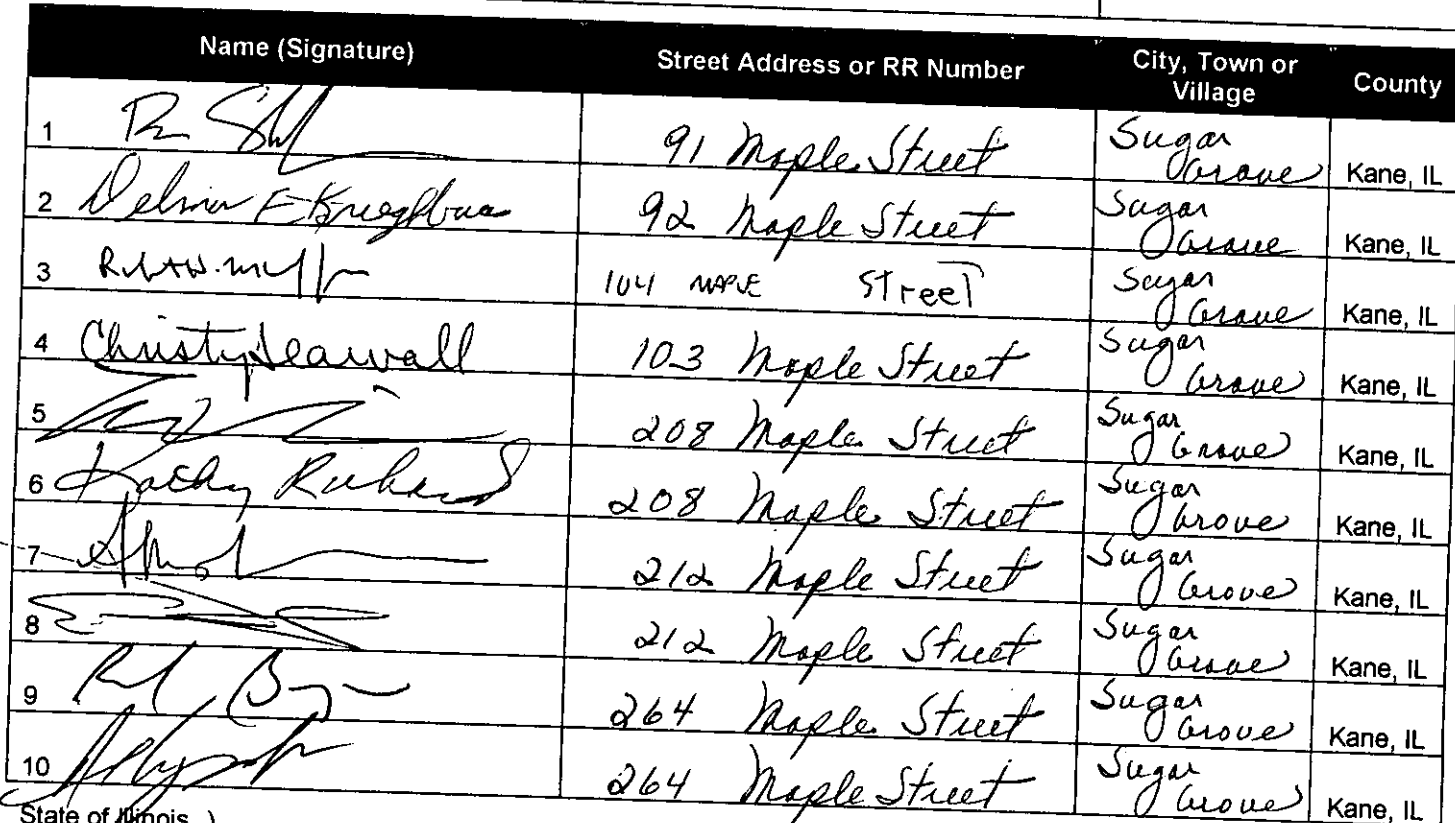 Name (Signature) Street Address or RR Number City, Town or Village County
1 91 Maple Street Sugar Grove Kane, IL
2 92 Maple Street Sugar Grove Kane, IL
3 104 MAPLE Street Sugar Grove Kane, IL
4 Christy Seawall 103 Maple Street Sugar Grove Kane, IL
5 208 Maple Street Sugar Grove Kane, IL
6 Kathy Richard 208 Maple Street Sugar Grove Kane, IL
7 212 Maple Street Sugar Grove Kane, IL
8 212 Maple Street Sugar Grove Kane, IL
9 264 Maple Street Sugar Grove Kane, IL
10 264 Maple Street Sugar Grove Kane, IL
State of Illinois )